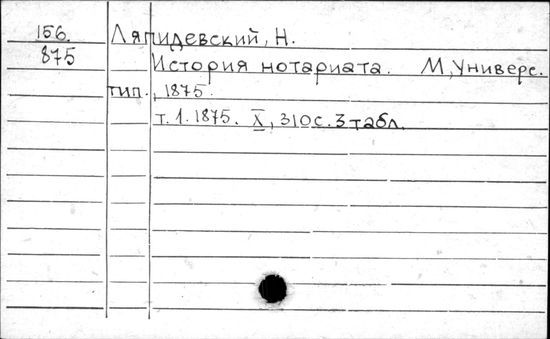 156. Ляпидевский, Н.
875 История нотариата. М, Универс.
тип., 1875.
т. 1. 1875. X, 310 с. 3 табл.